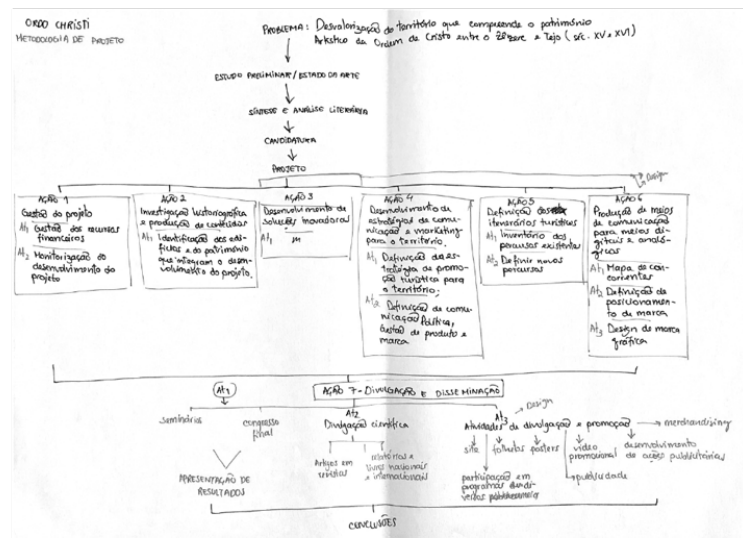 ORDO CHRISTI
METODOLOGIA DE PROJETO
PROBLEMA: Desvalorização do território que compreende o património
Artístico da Ordem de Cristo entre o Zêzere e Tejo (séc. XV e XVI)
ESTUDO PRELIMINAR / ESTADO DA ARTE
SÍNTESE E ANÁLISE LITERÁRIA
CANDIDATURA
PROJETO
Design
AÇÃO 1
Gestão do projeto
At1 Gestão dos recursos
financeiros
At2 Monitorização do
desenvolvimento do
projeto
AÇÃO 2
Investigação historiográfica
e produção de conteúdos
At1 Identificação dos edi-
fícios e do património
que integram o desen-
volvimento do projeto.
AÇÃO 3
Desenvolvimento de
soluções inovadoras
At1
AÇÃO 4
Desenvolvimento de
estratégias de comu-
nicação e marketing
para o território.
At1 Definição da es-
tratégia de promo-
ção turística para
o território.
At2 Definição de comu-
nicação Política,
Gestão de produto e
marca
AÇÃO 5
Definição de
itinerários turísticos
At1 Inventário dos
percursos existentes
At2 Definir novos
percursos
AÇÃO 6
Produção de meios
de comunicação
para meios di-
gitais e analó-
gicos
At1 Mapa de con-
correntes
At2 Definição de
posicionamen-
to de marca
At3 Design de marca
gráfica
AÇÃO 7 - DIVULGAÇÃO E DISSEMINAÇÃO
At1
seminários
congresso
final
APRESENTAÇÃO DE
RESULTADOS
At2
Divulgação científica
Artigos em
revistas
relatórios e
livros nacionais
e internacionais
At3
Design
Atividades de divulgação e promoção
merchandising
site
folhetos
posters
video
promocional
desenvolvimento
de ações publicitárias
participação em
programas
publicidade
CONCLUSÕES